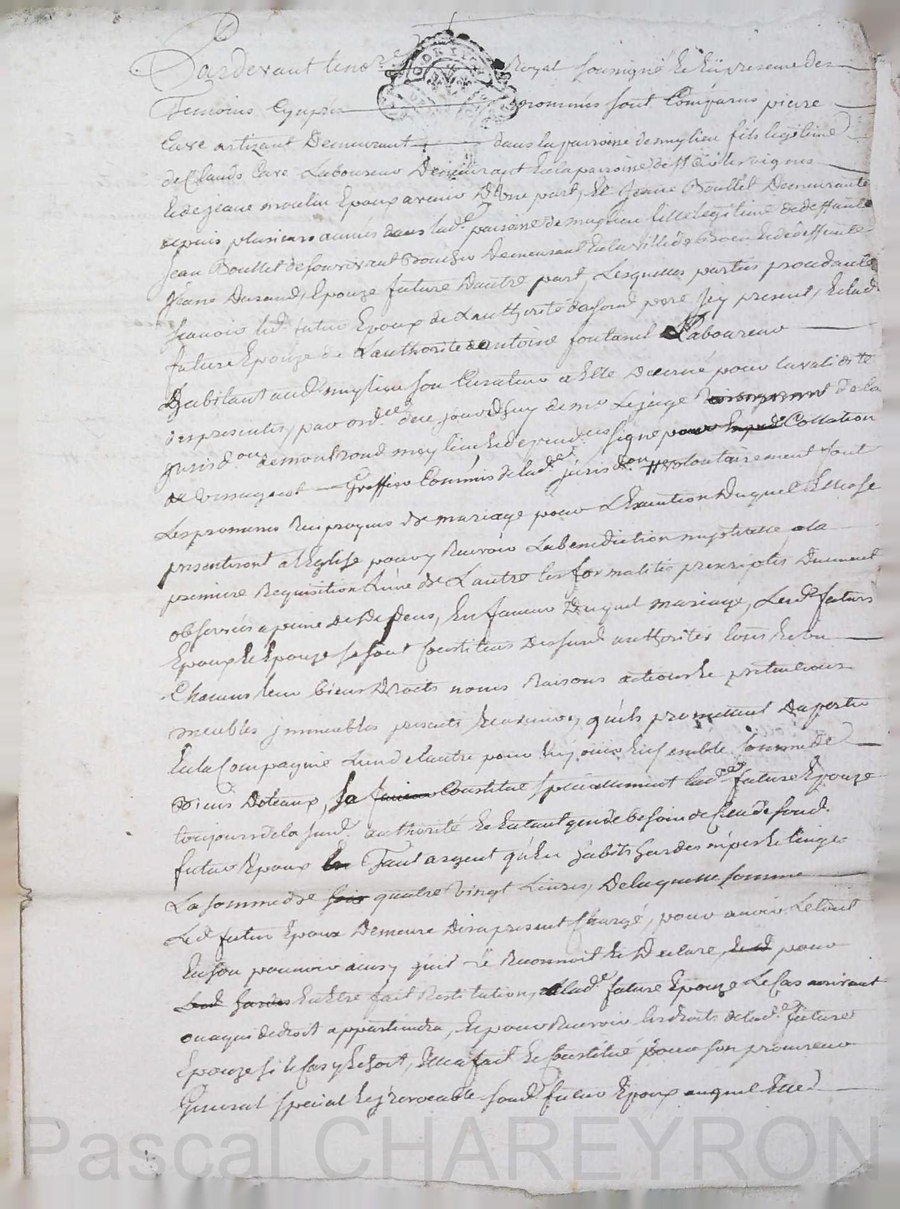 Pardevant le no.re Royal soussigné et en presence des
Temoins cy apres nommés sont comparus pierre
Cave artizant Demeurant dans la parroisse de meylieu fils legitime
de Claude Cave Laboureur Demeurant en la parroisse de
et de jeane moulin Epoux avenir D'Une part, et Jeane Boullet Demeurante
depuis plusieurs années dans lad.e paroisse de meylieu fille legitime de deffunt
Jean Boullet de son vivant Demeurant en la ville de Boen et de deffunte
jeane Durand, Epouze future Dautre part, Lesquelles parties procedantes
scavoir led. futur Epoux de L'authorité de sond. pere jcy present, et lad.
future Epouze de L'authorité de antoine fontanel Laboureur
habitant aud. meylieu son Curateur a elle Decerné pour la validitté
des presentes, par ord.ce de ce jourd'huy de mr Le juge de la
jurisd.on de montrond meylieu et dependances signé Collation
Greffier Commis de lad.e jurisd.on volontairement font
Les promesses Reciproques de mariage pour L'Execution Duquel Elles se
presenteront a l'Eglise pour y Recevoir La benediction nuptialle a la
premiere Requisition L'une de L'autre les formalités prescriptes Dument
observées a peine de Depens, En faveur Duquel mariage, Lesd. futurs
Epoux et Epouze se sont Constitués Desd. authorités tous et un
Chacuns leur biens Droits noms Raisons actions et pretentions
meubles jmmeubles presents et avenir, qu'ils promettent D'aporter
En la Compagnie L'un de Lautre pour En jouir Ensemble Comme de
Biens Dotaux, Constitue specialement lad.e future Epouze
toujours de la susd. authorité et En tant que de besoin de Celle de sond.
futur Epoux Tant argent qu'En habits hardes nipes et linge
La somme de quatre Vingt Livres, De laquelle somme
Led. futur Epoux Demeure Des a present Chargé, pour avoir Le tout
En son pouvoir ainsy qu'il Le Reconnoit et Declare, pour
En Etre fait Restitution, a lad.e future Epouze Le Cas arrivant
ou a qui de droit appartiendra, Et pour Recevoir les droits de lad.e future
Epouze si le Cas y Echoit, Elle a fait et Constitué pour son procureur
General special et jrrevocable sond. futur Epoux auquel Elle
Pascal CHAREYRON